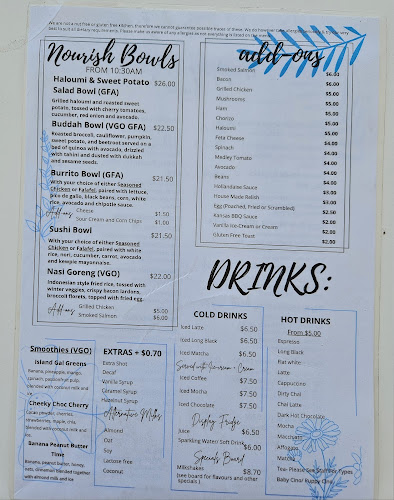 We are not a nut free or gluten free kitchen, therefore we cannot guarantee possible traces of these.
Nourish Bowls
FROM 10:30AM
Haloumi & Sweet Potato $26.00
Salad Bowl (GFA)
Grilled haloumi and roasted sweet
potato, tossed with cherry tomatoes,
cucumber, red onion and avocado.
Buddah Bowl (VGO GFA) $22.50
Roasted broccoli, cauliflower, pumpkin,
sweet potato, and beetroot served on a
bed of quinoa with avocado, drizzled
with tahini and dusted with dukkah
and sesame seeds.
Burrito Bowl (GFA) $21.50
With your choice of either Seasoned
Chicken or Falafel, paired with lettuce,
pico de gallo, black beans, corn, white
rice, avocado and chipotle sauce.
Add-ons Cheese $1.50
Sour Cream and Corn Chips $1.00
Sushi Bowl $21.50
With your choice of either Seasoned
Chicken or Falafel, paired with white
rice, nori, cucumber, carrot, avocado
and kewpie mayonnaise.
Nasi Goreng (VGO) $22.00
Indonesian style fried rice, tossed with
winter veggies, crispy bacon lardons,
broccoli florets, topped with fried egg.
Add-ons Grilled Chicken $5.00
Smoked Salmon $6.00
add-ons
Smoked Salmon $6.00
Bacon $5.00
Grilled Chicken $5.00
Mushrooms $5.00
Ham $5.00
Chorizo $5.00
Haloumi $5.00
Feta Cheese $4.00
Spinach $4.00
Medley Tomato $4.00
Avocado $4.00
Beans $4.00
Hollandaise Sauce $3.00
House Made Relish $3.00
Egg (Poached, Fried or Scrambled) $2.00
Kansas BBQ Sauce $2.00
Vanilla Ice-Cream or Cream $2.00
Gluten Free Toast $2.00
DRINKS:
Smoothies (VGO)
Island Gal Greens
Banana, pineapple, mango,
spinach, passionfruit pulp,
blended with coconut milk and
ice.
Cheeky Choc Cherry
Cacao powder, cherries,
strawberries, maple, chia,
blended with coconut milk and
ice.
Banana Peanut Butter
Time
Banana, peanut butter, honey,
oats, cinnamon blended together
with almond milk and ice
EXTRAS + $0.70
Extra Shot
Decaf
Vanilla Syrup
Caramel Syrup
Hazelnut Syrup
Alternative Milks
Almond
Oat
Soy
Lactose free
Coconut
COLD DRINKS
Iced Latte $6.50
Iced Long Black $6.50
Iced Matcha $6.50
Served with Icecream + Cream
Iced Coffee $7.50
Iced Mocha $7.50
Iced Chocolate $7.50
Display Fridge
Juice $6.50
Sparkling Water/ Soft Drink $6.00
Specials Board
Milkshakes $8.70
(see board for flavours and other
specials )
HOT DRINKS
From $5.00
Espresso
Long Black
Flat white
Latte
Cappuccino
Dirty Chai
Chai Latte
Dark Hot Chocolate
Mocha
Macchiato
Affogato
Matcha
Tea- Please See Staff for Types
Baby Cino/ Puppy Cino